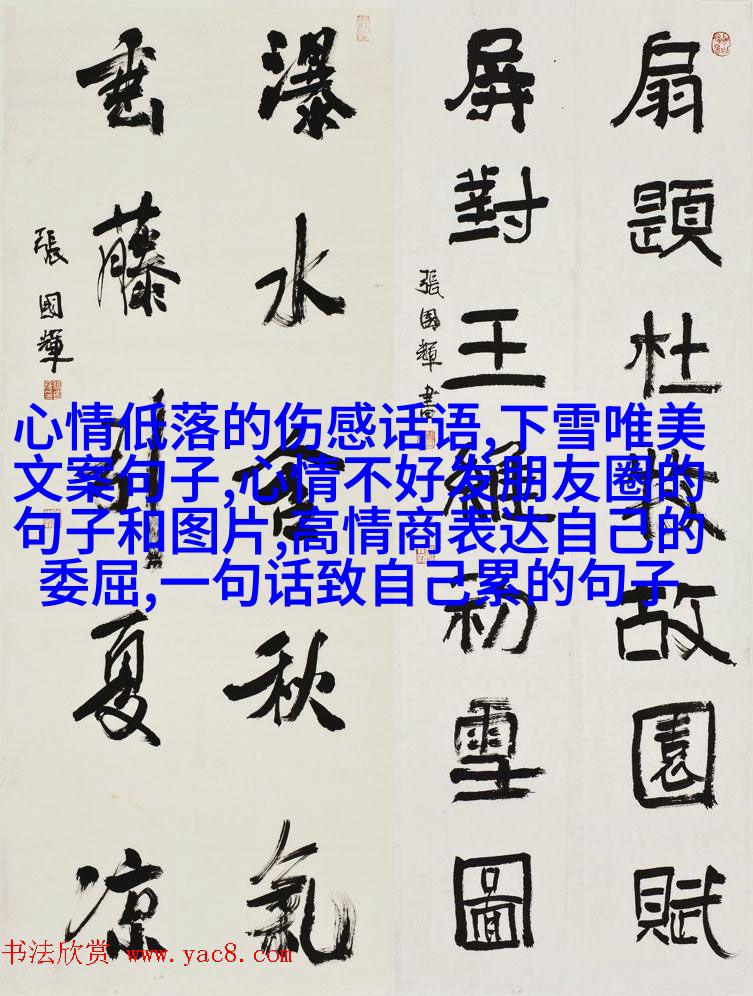 扇題杜牧故園賦
屏對王維初雪圖
張國輝書
瀑水含秋氣
垂藤引夏凉
張國輝
心情低落的伤感话语,下雪唯美
文案句子,心情不好发朋友圈的
句子和图片,高情商表达自己的
委屈,一句话致自己累的句子
书法欣赏 www.yac8.com